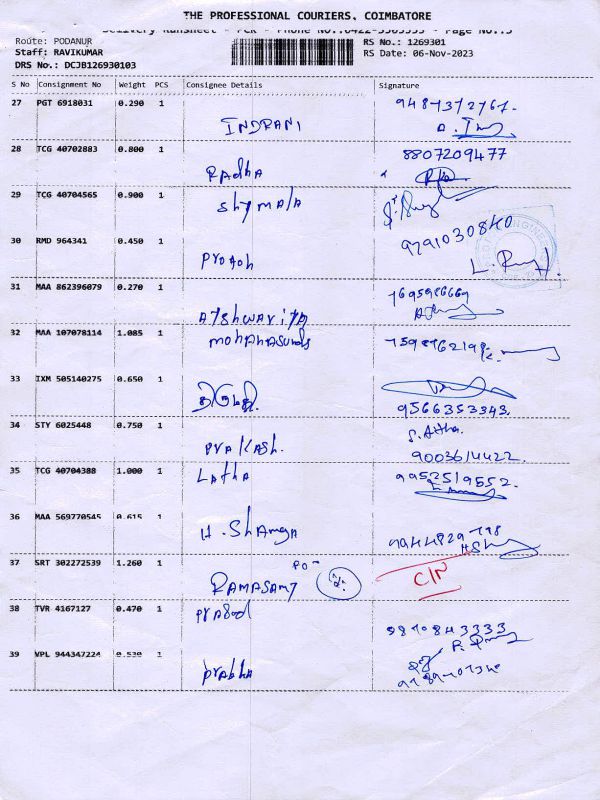 THE PROFESSIONAL COURIERS. COIMBATORE
Delivery Runsheet - PCR - Phone No.:0422-3505555 - Page No.:3
Route: PODANUR RS No.: 1269301
Staff: RAVIKUMAR RS Date: 06-Nov-2023
DRS No.: DCJB126930103
S No Consignment No Weight PCS Consignee Details Signature
27 PGT 6918031 0.290 1
INDRANI
28 TCG 40702883 0.800 1 8807209477
Radha
29 TCG 40704565 0.900 1
Shymala
30 RMD 964341 0.450 1 9791030840
31 MAA 862396079 0.270 1
Aishwariya
32 MAA 107078114 1.085 1
33 IXM 505140275 0.650 1
9566353343.
34 STY 6025448 0.750 1
Prakash. 9003614422.
35 TCG 40704388 1.000 1 9952519552.
Latha
36 MAA 569770545 0.615 1
37 SRT 302272539 1.260 1
RAMASAMY C/N
38 TVR 4167127 0.470 1
Prasad
39 VPL 944347224 0.530 1
Prabha